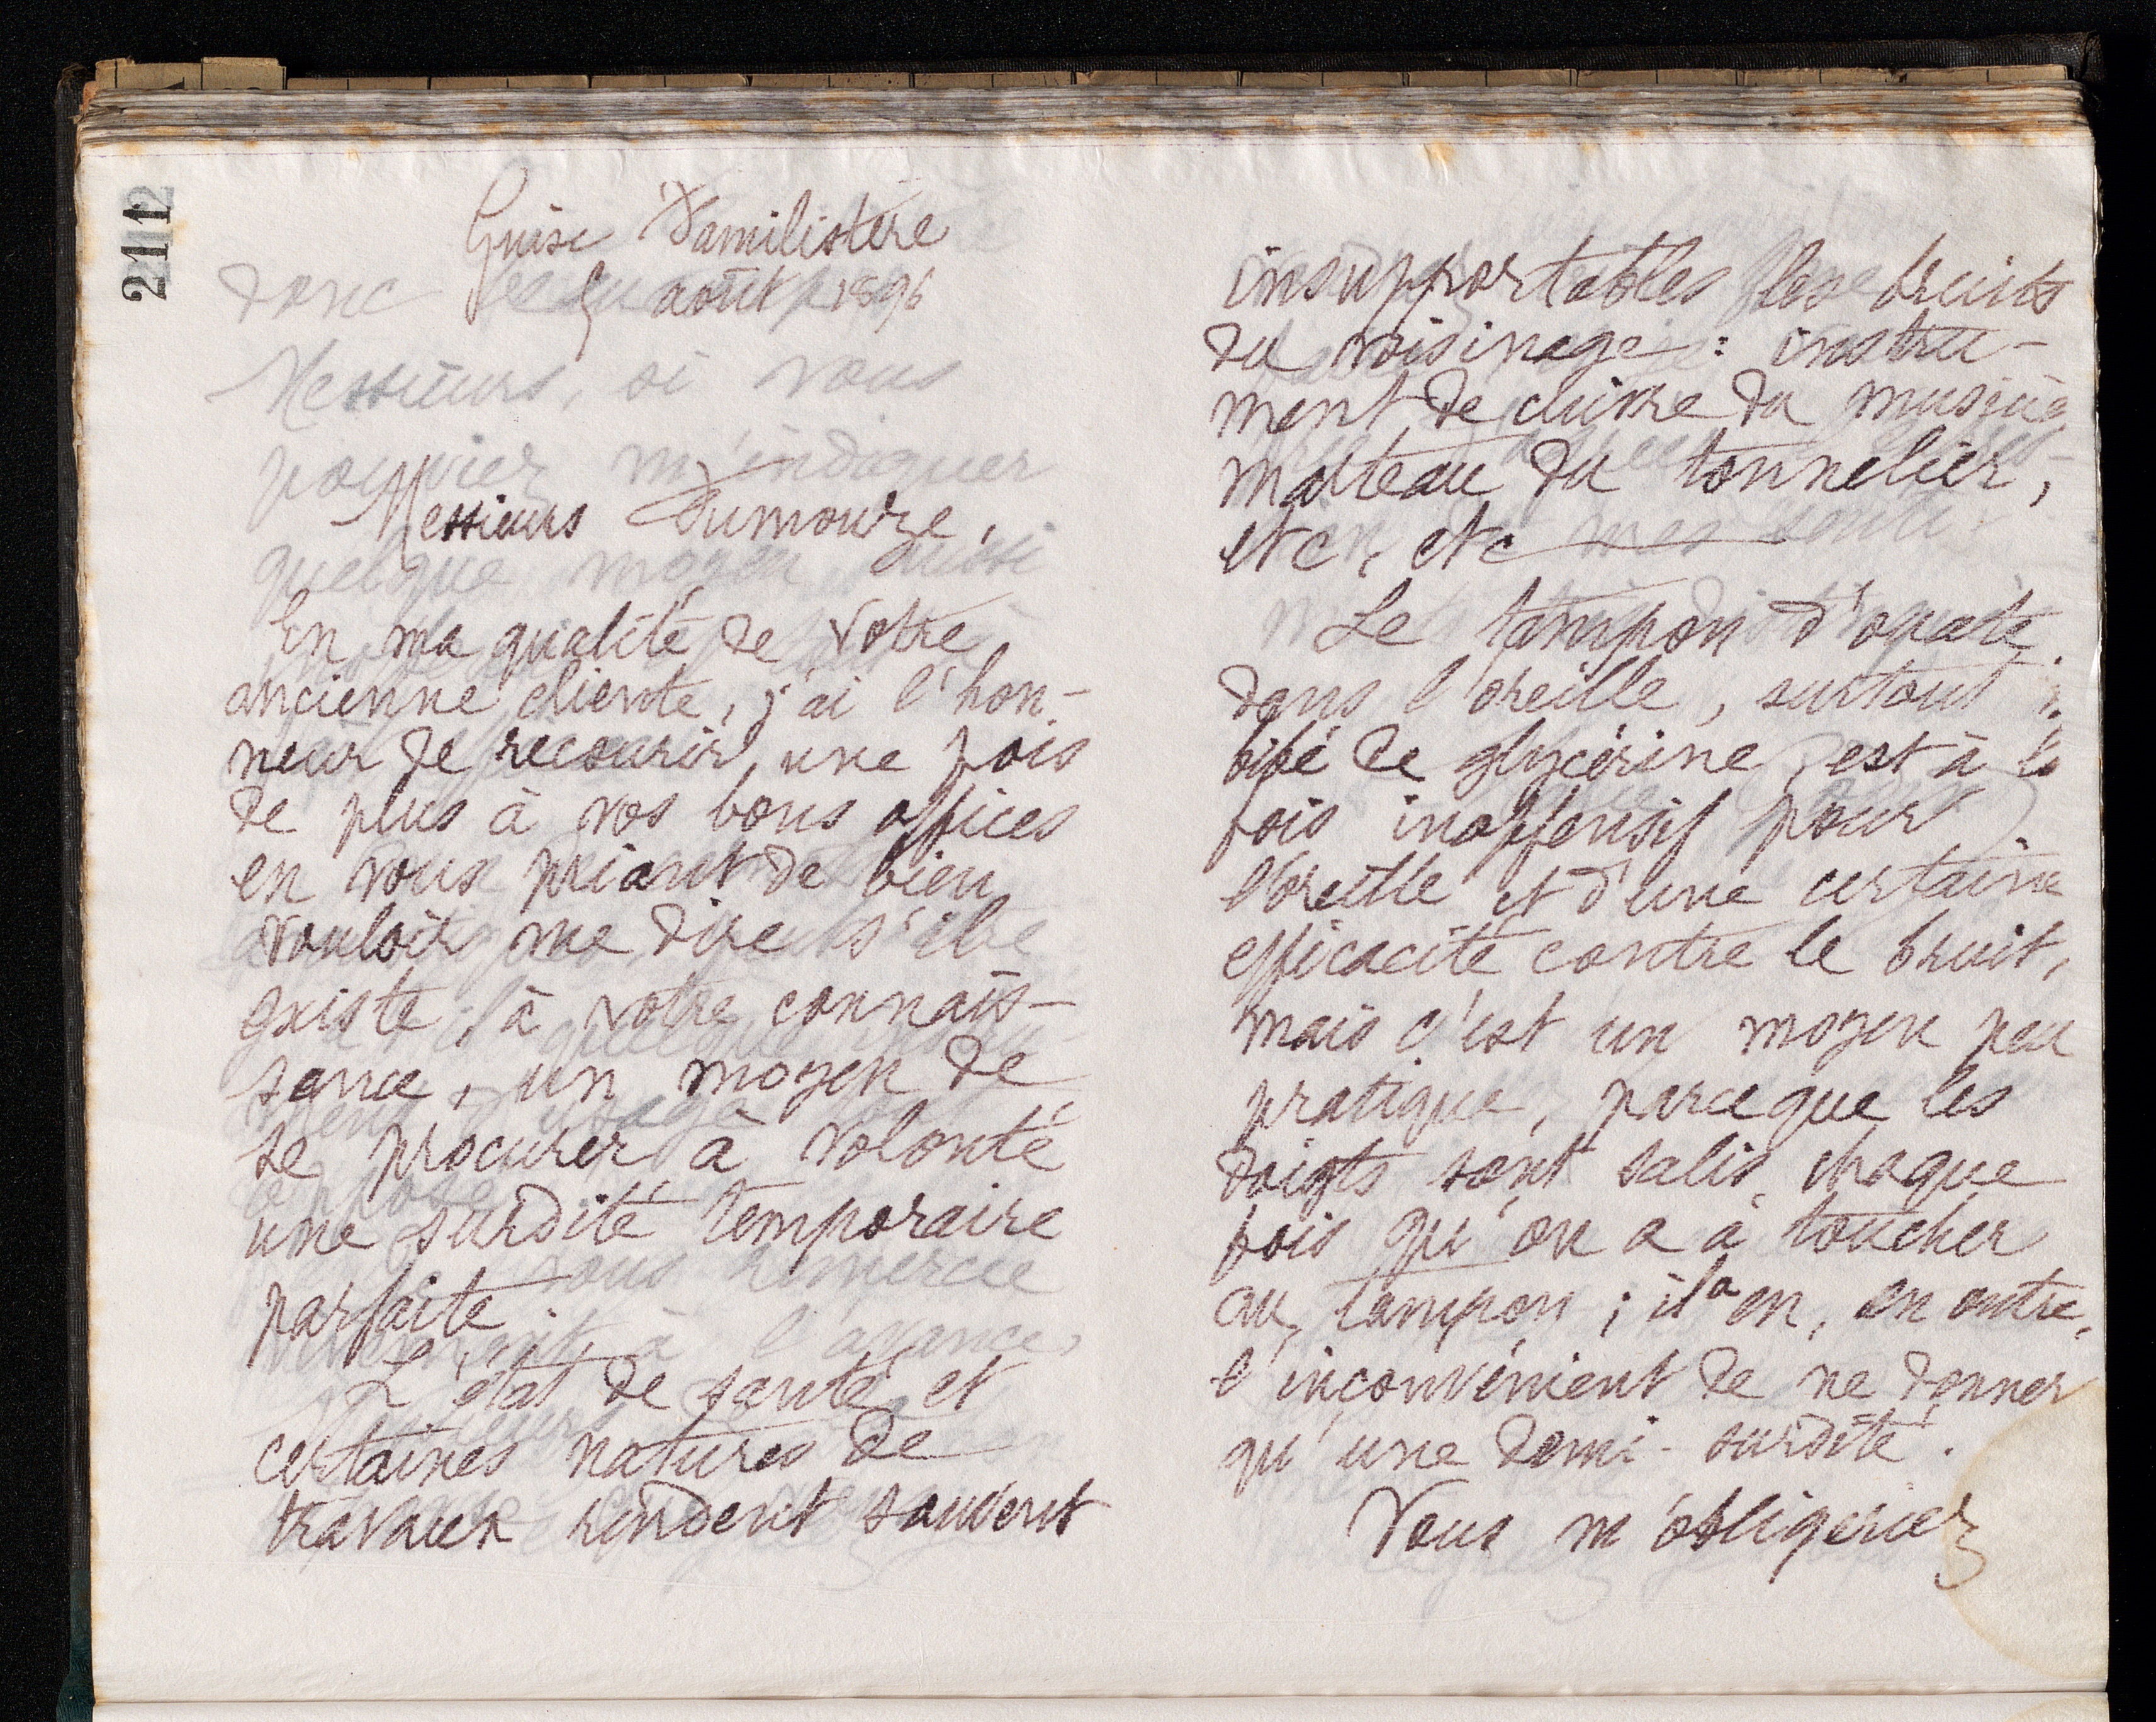 211
Guise Familistère
août 1896
Messieurs Dumouze,
En ma qualité de votre
ancienne cliente, j'ai l'hon-
neur de recourir une fois
de plus à vos bons offices
en vous priant de bien
vouloir me dire s'il
existe, à votre connais-
sance, un moyen de
se procurer à volonté
une surdité temporaire
parfaite.
L'état de santé et
certaines natures de
travaux rendent souvent
insupportables les bruits
du voisinage : instru-
ment de cuivre du
marteau du tonnelier,
etc, etc
Le tampon d'ouate
dans l'oreille, surtout
bibé de glycérine, est à la
fois inoffensif pour
l'oreille et d'une certaine
efficacité contre le bruit,
mais c'est un moyen peu
pratique, parceque les
doigts sont salis, chaque
fois qu'on a à toucher
au tampon ; il a en, en outre,
l'inconvénient de ne donner
qu'une demi-surdité.
Vous m'obligeriez
donc
Messieurs, si vous
pouviez m'indiquer
quelque moyen aussi
vous remercie
à l'avance,